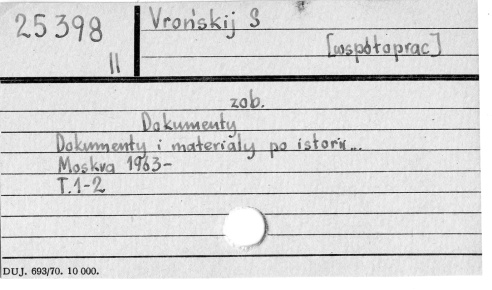 25398
II
Vrońskij S
[współoprac]
zob.
Dokumenty
Dokumenty i materiały po istorii...
Moskva 1963-
T.1-2
DUJ. 693/70. 10 000.